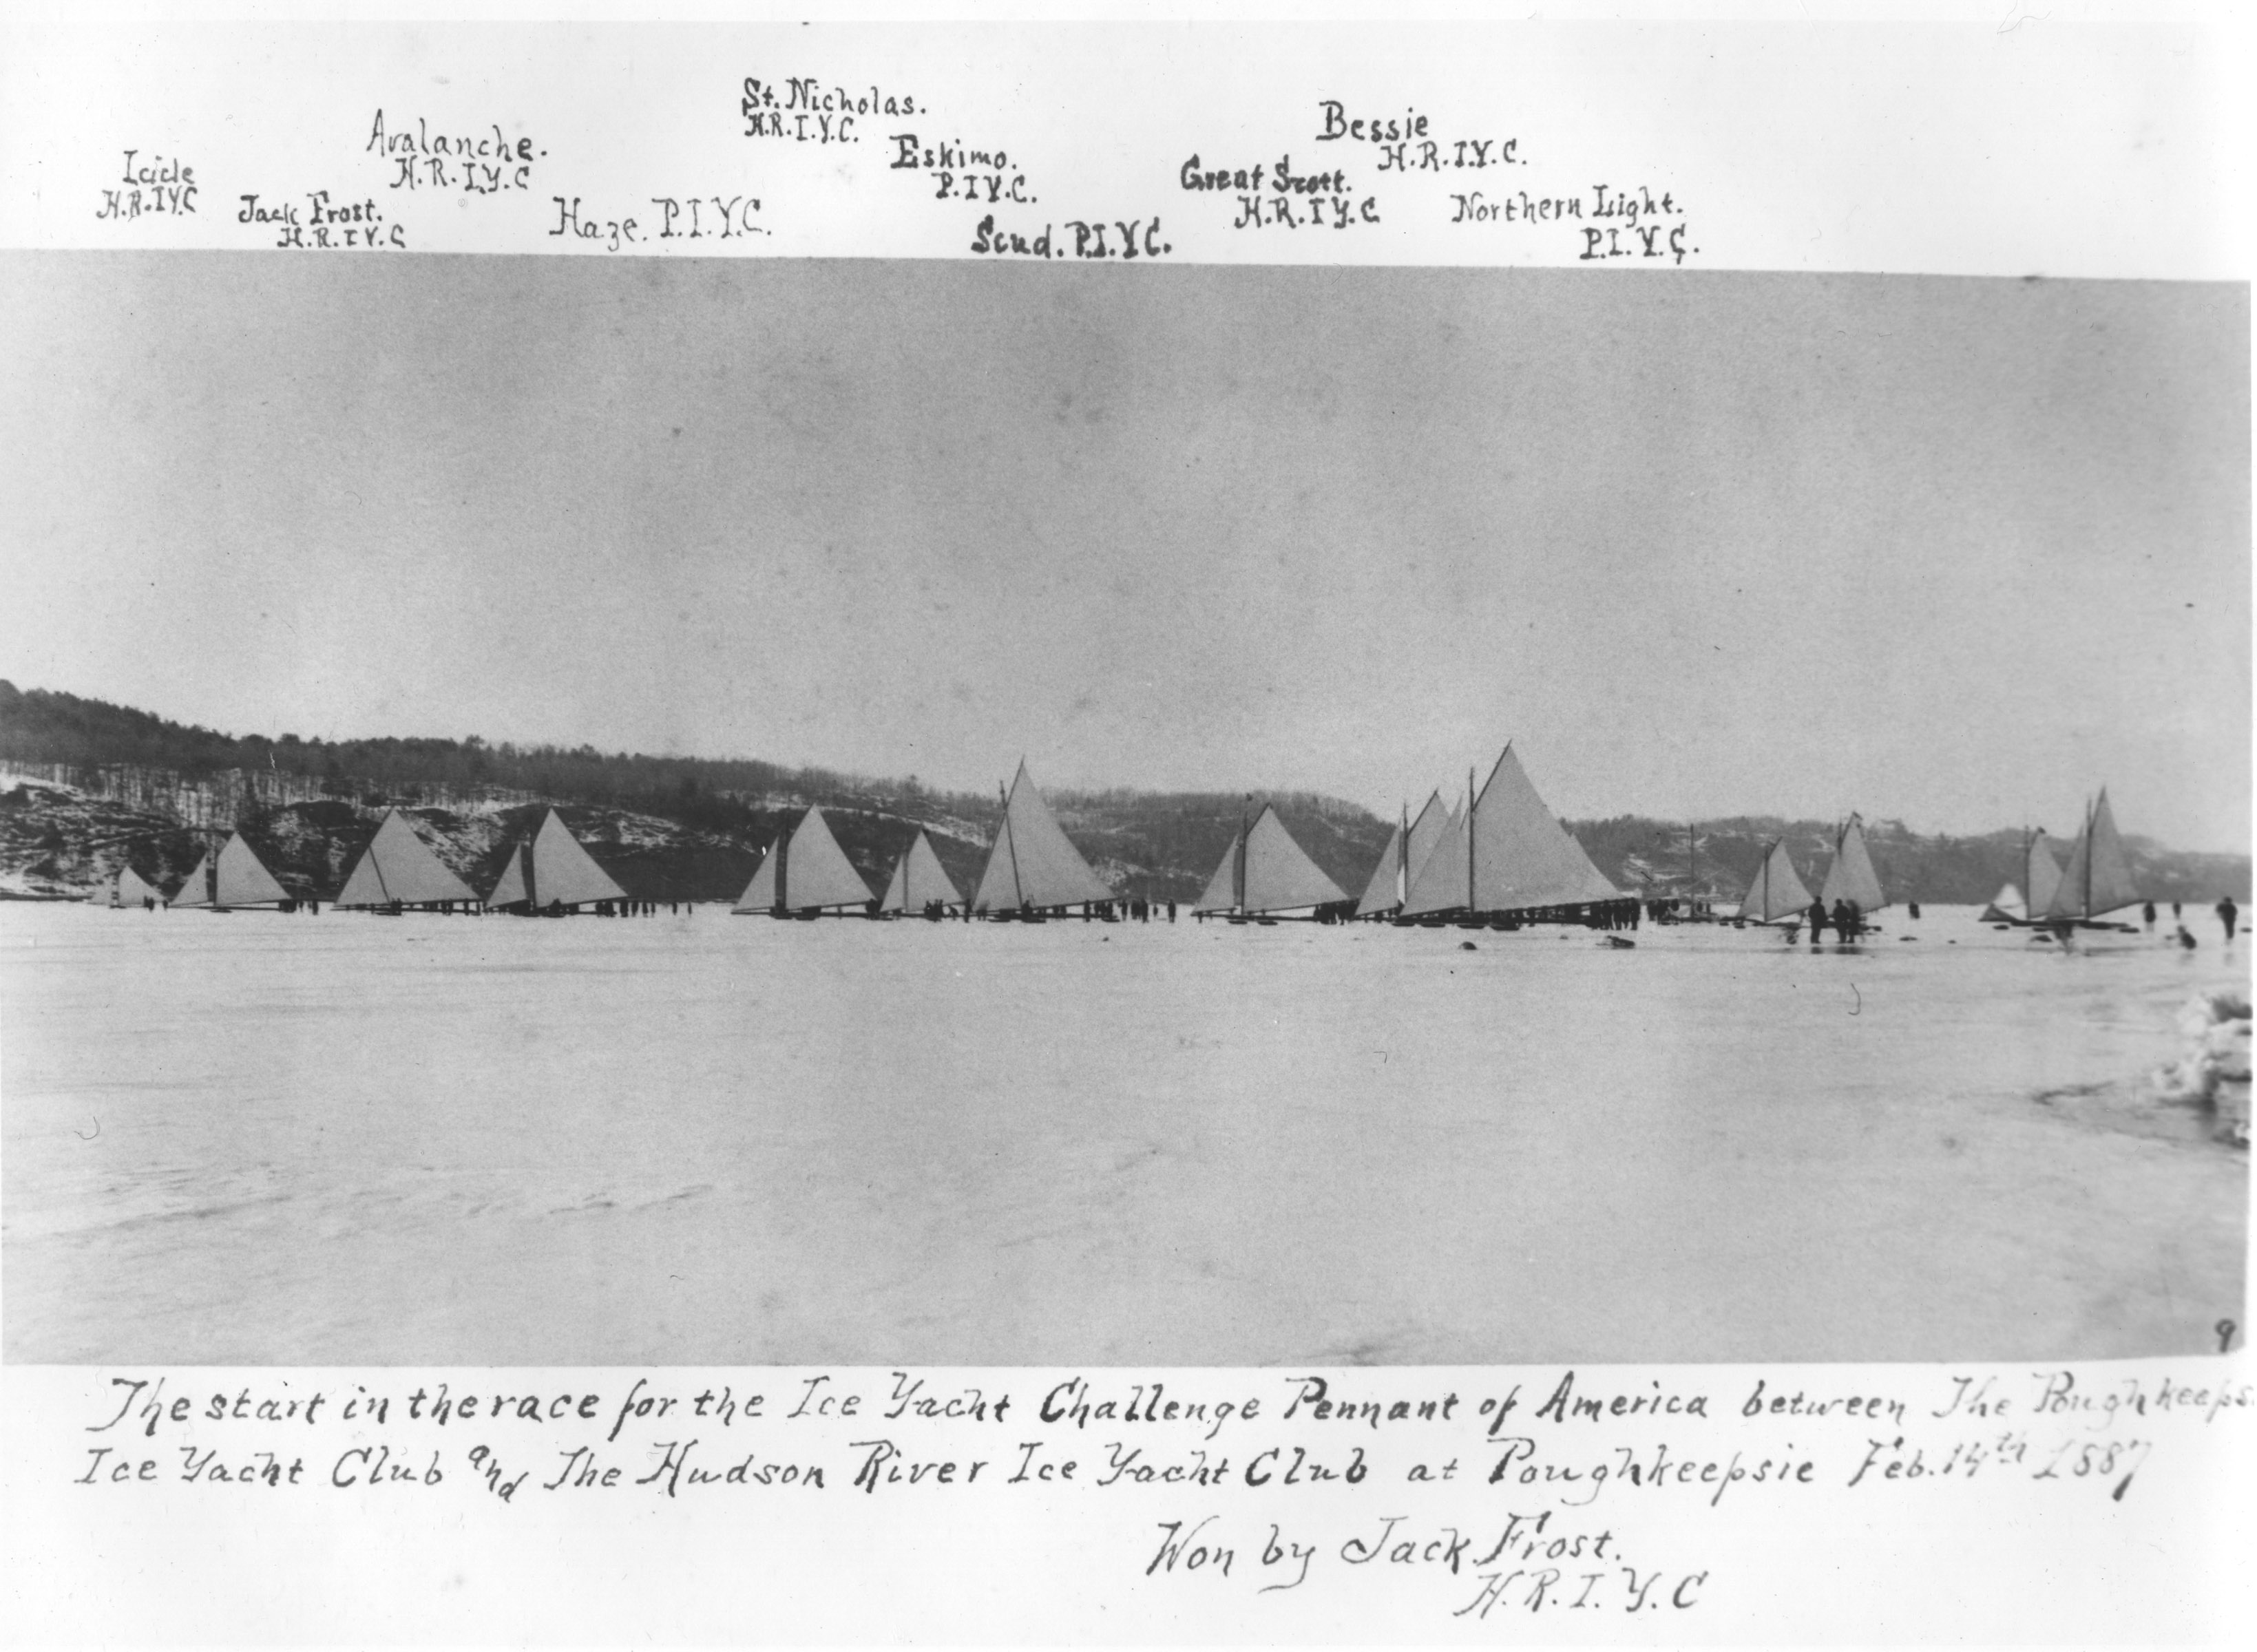 Icicle
H.R.I.Y.C
Jack Frost.
H.R.I.Y.C
Avalanche.
H.R.I.Y.C
Haze. P.I.Y.C.
St. Nicholas.
H.R.I.Y.C.
Eskimo.
P.I.Y.C.
Scud. P.I.Y.C.
Great Scott.
H.R.I.Y.C
Bessie
H.R.I.Y.C.
Northern Light.
P.I.Y.C.
9
The start in the race for the Ice Yacht Challenge Pennant of America between The Poughkeeps
Ice Yacht Club and The Hudson River Ice Yacht Club at Poughkeepsie Feb. 14th 1887
Won by Jack Frost.
H.R.I.Y.C